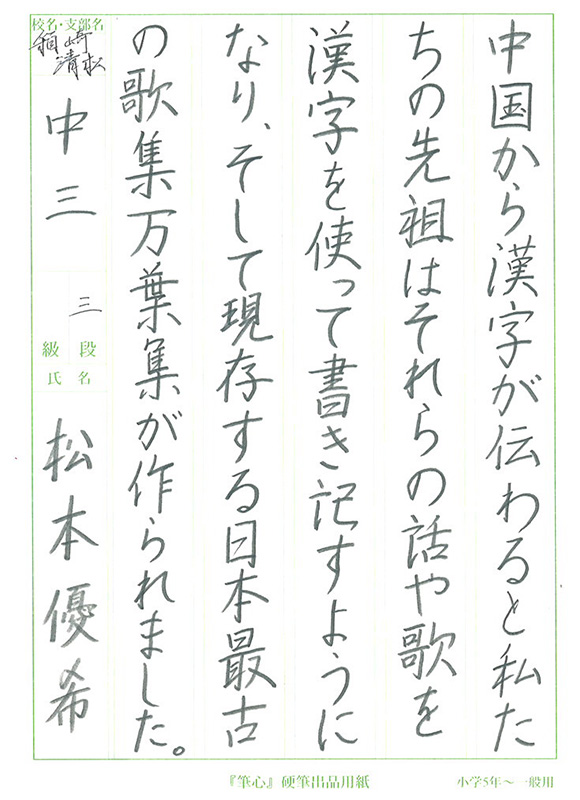 中国から漢字が伝わると私た
ちの先祖はそれらの話や歌を
漢字を使って書き記すように
なり、そして現存する日本最古
の歌集万葉集が作られました。
校名・支部名
中三
三
段
級
氏名
松本優希
『筆心』硬筆出品用紙
小学5年〜一般用